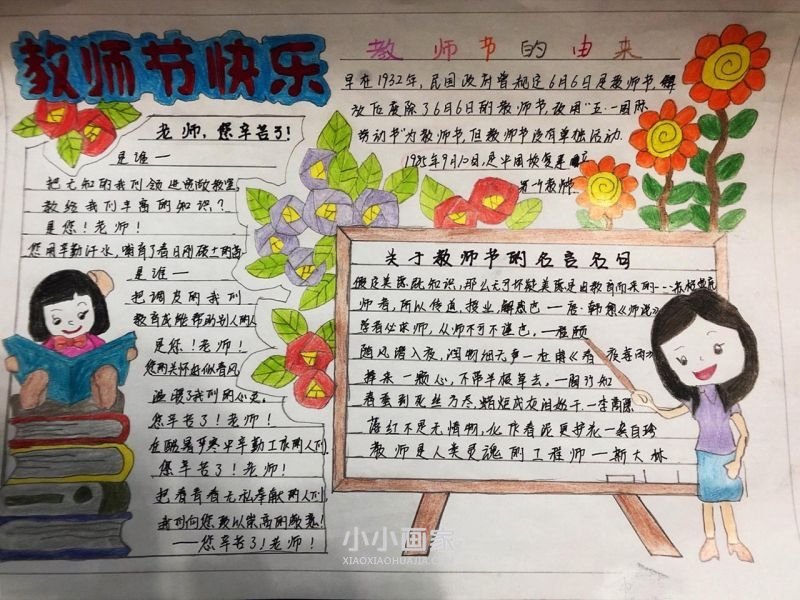 教师节快乐
教师节的由来
早在1932年,民国政府曾规定6月6日是教师节,解
放后废除了6月6日的教师节,改用"五·一国际
劳动节"为教师节,但教师节没有单独活动.
1985年9月10日,是中国恢复建立
第一个教师
老师,您辛苦了!
是谁—
把无知的我们领进宽敞教室,
教给我们丰富的知识?
是您!老师!
您用辛勤汗水,哺育了春日刚破土的
是谁—
把调皮的我们
教育成能帮助别人的人
是您!老师!
您的关怀好似春风
温暖了我们的心灵,
您辛苦了!老师!
在酷暑严寒中辛勤工作的人们
您辛苦了!老师!
把青春无私奉献的人们
我们向您致以崇高的敬意!
——您辛苦了!老师!
关于教师节的名言名句
师者,所以传道,授业,解惑也—唐·韩愈《师说》
随风潜入夜,润物细无声—杜甫《春夜喜雨》
捧来一颗心,不带半根草去,—陶行知
春蚕到死丝方尽,蜡炬成灰泪始干.—李商隐
落红不是无情物,化作春泥更护花—龚自珍
教师是人类灵魂的工程师—斯大林
小小画家
XIAOXIAOHUAJIA.COM